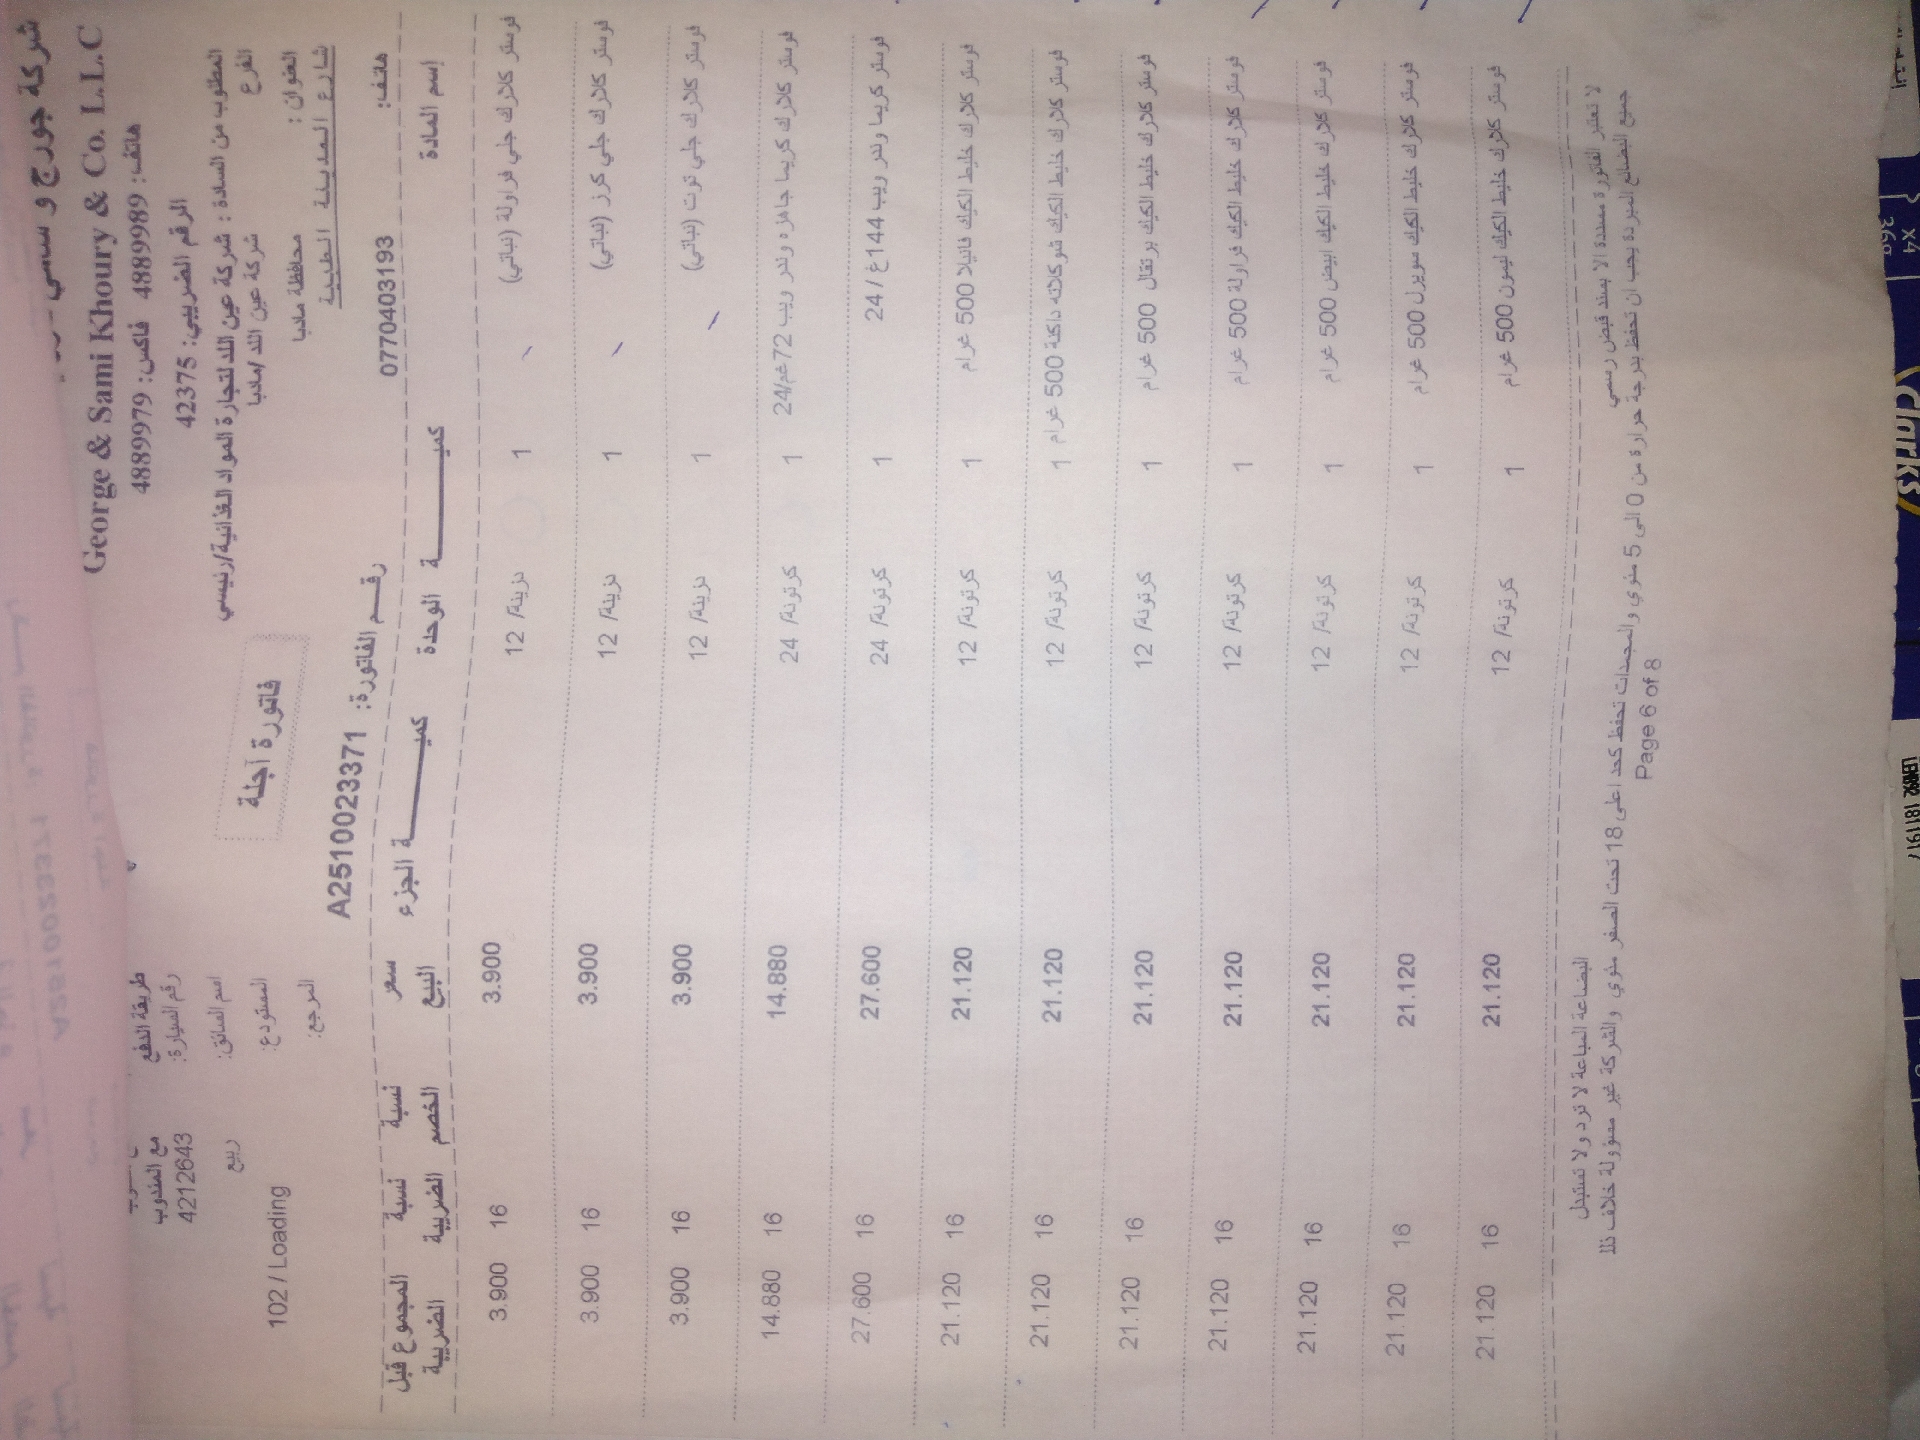 شركة جورج و سامي
George & Sami Khoury & Co. L.L.C
هاتف: 4889989 فاكس: 4889979
الرقم الضريبي: 42375
المطلوب من السادة : شركة عين اللد لتجارة المواد الغذائية/رئيسي
الفرع شركة عين اللد /مادبا
العنوان : محافظة مادبا
شارع المدينة الطبية
هاتف: 0770403193
طريقة الدفع مع المندوب
رقم السيارة: 4212643
اسم السائق: ربيع
المستودع: 102 / Loading
المرجع:
فاتورة آجلة
رقم الفاتورة: A25100023371
إسم المادة كميـــة الوحدة كميـــة الجزء سعر البيع نسبة الخصم نسبة الضريبة المجموع قبل الضريبة
فوستر كلارك جلي فراولة (نباتي) 1 دزينة/ 12 3.900 16 3.900
فوستر كلارك جلي كرز (نباتي) 1 دزينة/ 12 3.900 16 3.900
فوستر كلارك جلي توت (نباتي) 1 دزينة/ 12 3.900 16 3.900
فوستر كلارك كريما جاهزه وندر ويب 72غم/24 1 كرتونة/ 24 14.880 16 14.880
فوستر كريما وندر ويب 144غ / 24 1 كرتونة/ 24 27.600 16 27.600
فوستر كلارك خليط الكيك فانيلا 500 غرام 1 كرتونة/ 12 21.120 16 21.120
فوستر كلارك خليط الكيك شوكلاته داكنة 500 غرام 1 كرتونة/ 12 21.120 16 21.120
فوستر كلارك خليط الكيك برتقال 500 غرام 1 كرتونة/ 12 21.120 16 21.120
فوستر كلارك خليط الكيك فراولة 500 غرام 1 كرتونة/ 12 21.120 16 21.120
فوستر كلارك خليط الكيك ابيض 500 غرام 1 كرتونة/ 12 21.120 16 21.120
فوستر كلارك خليط الكيك سويرل 500 غرام 1 كرتونة/ 12 21.120 16 21.120
فوستر كلارك خليط الكيك ليمون 500 غرام 1 كرتونة/ 12 21.120 16 21.120
لا تعتبر الفاتورة مسددة الا بسند قبض رسمي البضاعة المباعة لا ترد ولا تستبدل
جميع البضائع المبردة يجب ان تحفظ بدرجة حرارة من 0 الى 5 مئوي والمجمدات تحفظ كحد اعلى 18 تحت الصفر مئوي والشركة غير مسؤولة خلاف ذلك
Page 6 of 8
x4
36g
Clarks
1811917